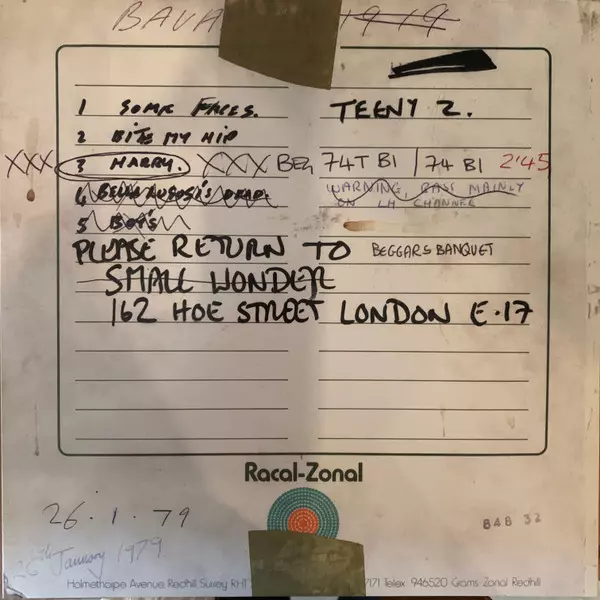 BAVA 1919
1 SOME FACES. TEENY 2.
2 BITE MY HIP
XXX 3 HARRY. XXX BEG 74T B1 / 74 B1 2'45
4 BELA LUGOSI'S DEAD WARNING, BASS MAINLY
ON LH CHANNEL
5 BOYS
PLEASE RETURN TO BEGGARS BANQUET
SMALL WONDER
162 HOE STREET LONDON E.17
Racal-Zonal
26.1.79
848 32
26th January 1979
Holmethorpe Avenue Redhill Surrey RH1 7171 Telex 946520 Grams Zonal Redhill